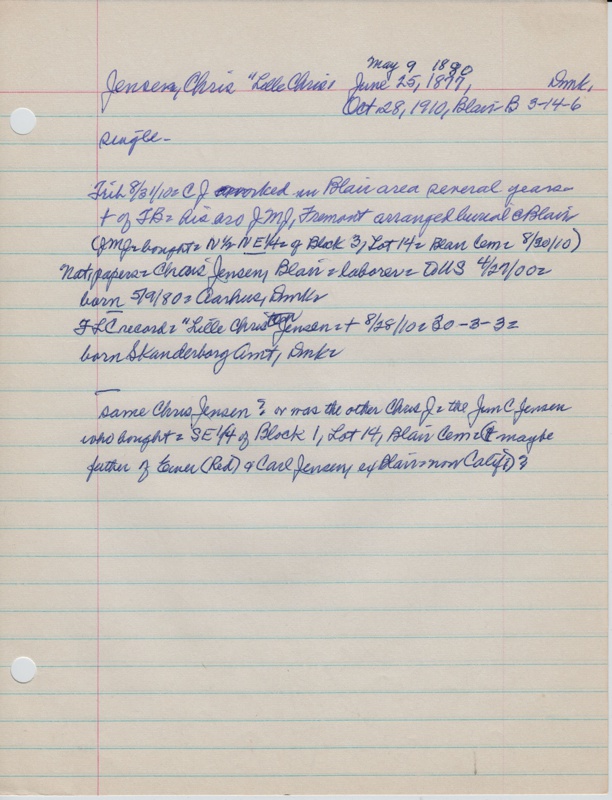 May 9 1880
Jensen, Chris "Lille Chris" June 25, 1877, Dmk.
Oct 28, 1910, Blair B 3-14-6
single-
Trib 8/31/10= C J worked in Blair area several years-
+ of TB= his bro J.M.J, Fremont arranged burial @ Blair
(JMJ= bought= N½ NE¼= of Block 3, Lot 14= Blair Cem= 8/30/10)
Nat. papers= Chris Jensen, Blair= laborer= to US 4/27/00=
born 5/9/80= Aarhus, Dmk=
FLC record= "Lille Chris" Jensen= + 8/28/10= 30-3-3=
born Skanderborg Amt, Dmk=
same Chris Jensen? or was the other Chris J= the Jens C Jensen
who bought= SE 1/4 of Block 1, Lot 14, Blair Cem= (& maybe
father of Einer (Red) & Carl Jensen, ex Blair= now Calif)?